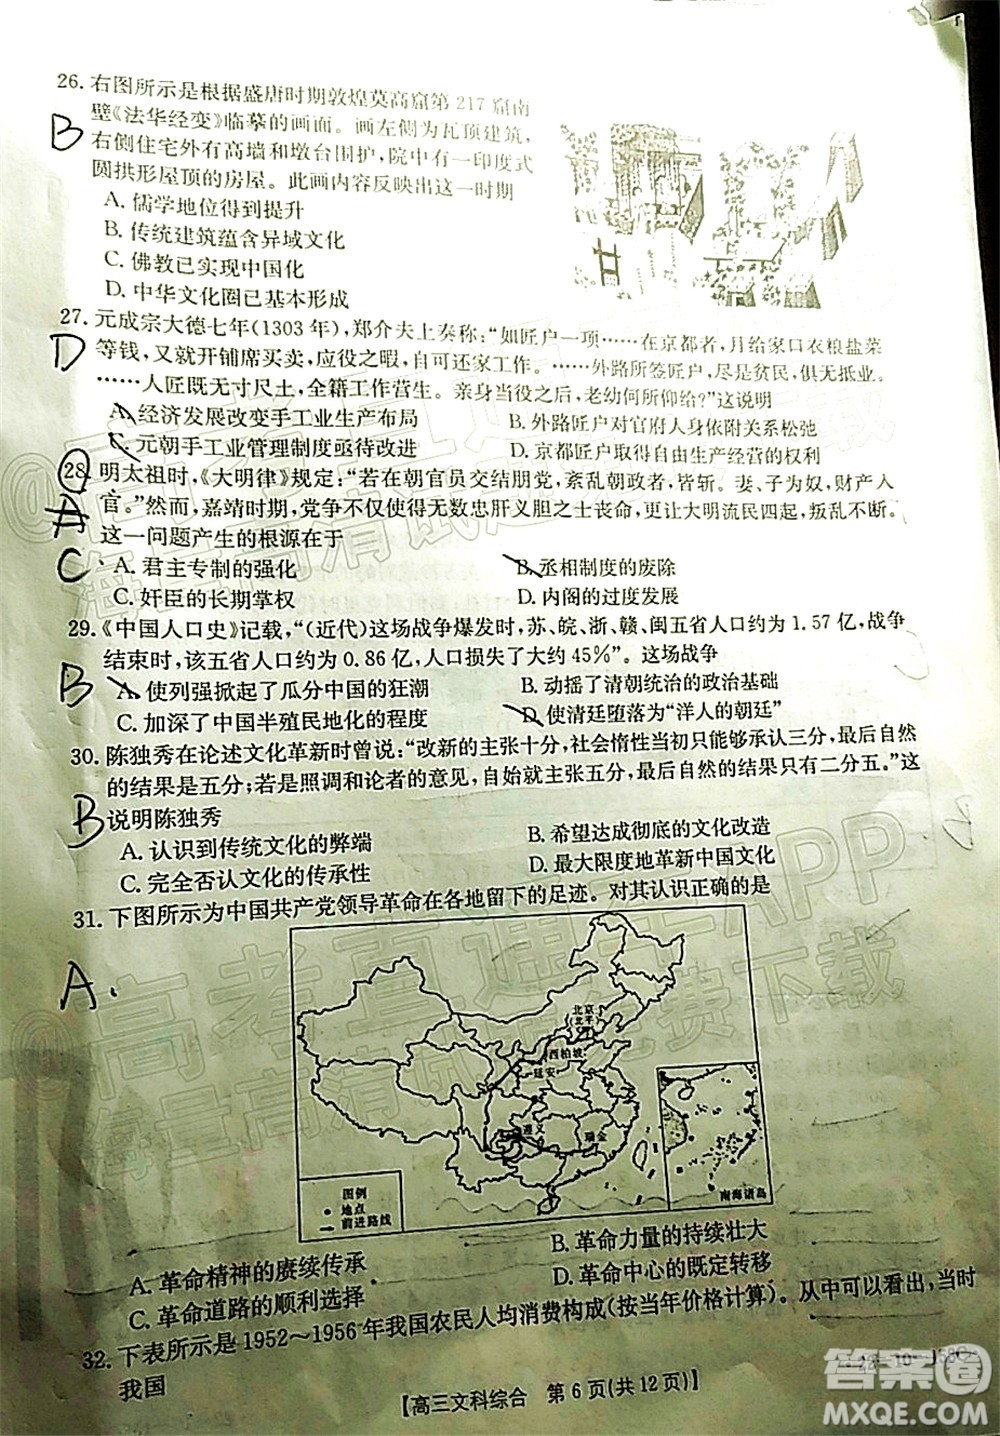 26. 右图所示是根据盛唐时期敦煌莫高窟第 217 窟南
壁《法华经变》临摹的画面。画左侧为瓦顶建筑,
B
右侧住宅外有高墙和墩台围护,院中有一印度式
圆拱形屋顶的房屋。此画内容反映出这一时期
A. 儒学地位得到提升
B. 传统建筑蕴含异域文化
C. 佛教已实现中国化
D. 中华文化圈已基本形成
27. 元成宗大德七年(1303 年),郑介夫上奏称:“如匠户一项……在京都者,月给家口衣粮盐菜
D
等钱,又就开铺席买卖,应役之暇,自可还家工作。……外路所签匠户,尽是贫民,俱无抵业。
……人匠既无寸尺土,全籍工作营生。亲身当役之后,老幼何所仰给?”这说明
A. 经济发展改变手工业生产布局
B. 外路匠户对官府人身依附关系松弛
C. 元朝手工业管理制度亟待改进
D. 京都匠户取得自主生产经营的权利
28. 明太祖时,《大明律》规定:“若在朝官员交结朋党,紊乱朝政者,皆斩。妻、子为奴,财产入
A
官。”然而,嘉靖时期,党争不仅使得无数忠肝义胆之士丧命,更让大明流民四起,叛乱不断。
这一问题产生的根源在于
C
A. 君主专制的强化
B. 丞相制度的废除
C. 奸臣的长期掌权
D. 内阁的过度放权
29.《中国人口史》记载,“(近代)这场战争爆发时,苏、皖、浙、赣、闽五省人口约为 1.57 亿,战争
结束时,该五省人口约为 0.86 亿,人口损失了大约 45%”。这场战争
B
A. 使列强掀起了瓜分中国的狂潮
B. 动摇了清朝统治的政治基础
C. 加深了中国半殖民地化的程度
D. 使清廷堕落为“洋人的朝廷”
30. 陈独秀在论述文化革新时曾说:“改新的主张十分,社会惰性当初只能承认三分,最后自然
的结果是五分;若是照调和论者的意见,自始就主张五分,最后自然的结果只有二分五。”这
说明陈独秀
B
A. 认识到传统文化的弊端
B. 希望达成彻底的文化改造
C. 完全否认文化的传承
D. 最大限度地革新中国文化
31. 下图所示为中国共产党领导革命在各地留下的足迹。对其认识正确的是
A.
北京
(北平)
西柏坡
延安
遵义
瑞金
南海诸岛
图例
地点
前进路线
A. 革命精神的赓续传承
B. 革命力量的持续壮大
C. 革命道路的顺利选择
D. 革命中心的既定转移
32. 下表所示是 1952～1956 年我国农民人均消费构成(按当年价格计算)。从中可以看出,当时
我国
【高三文科综合 第 6 页(共 12 页)】
答案圈
MXQE.COM
@高考直通车APP